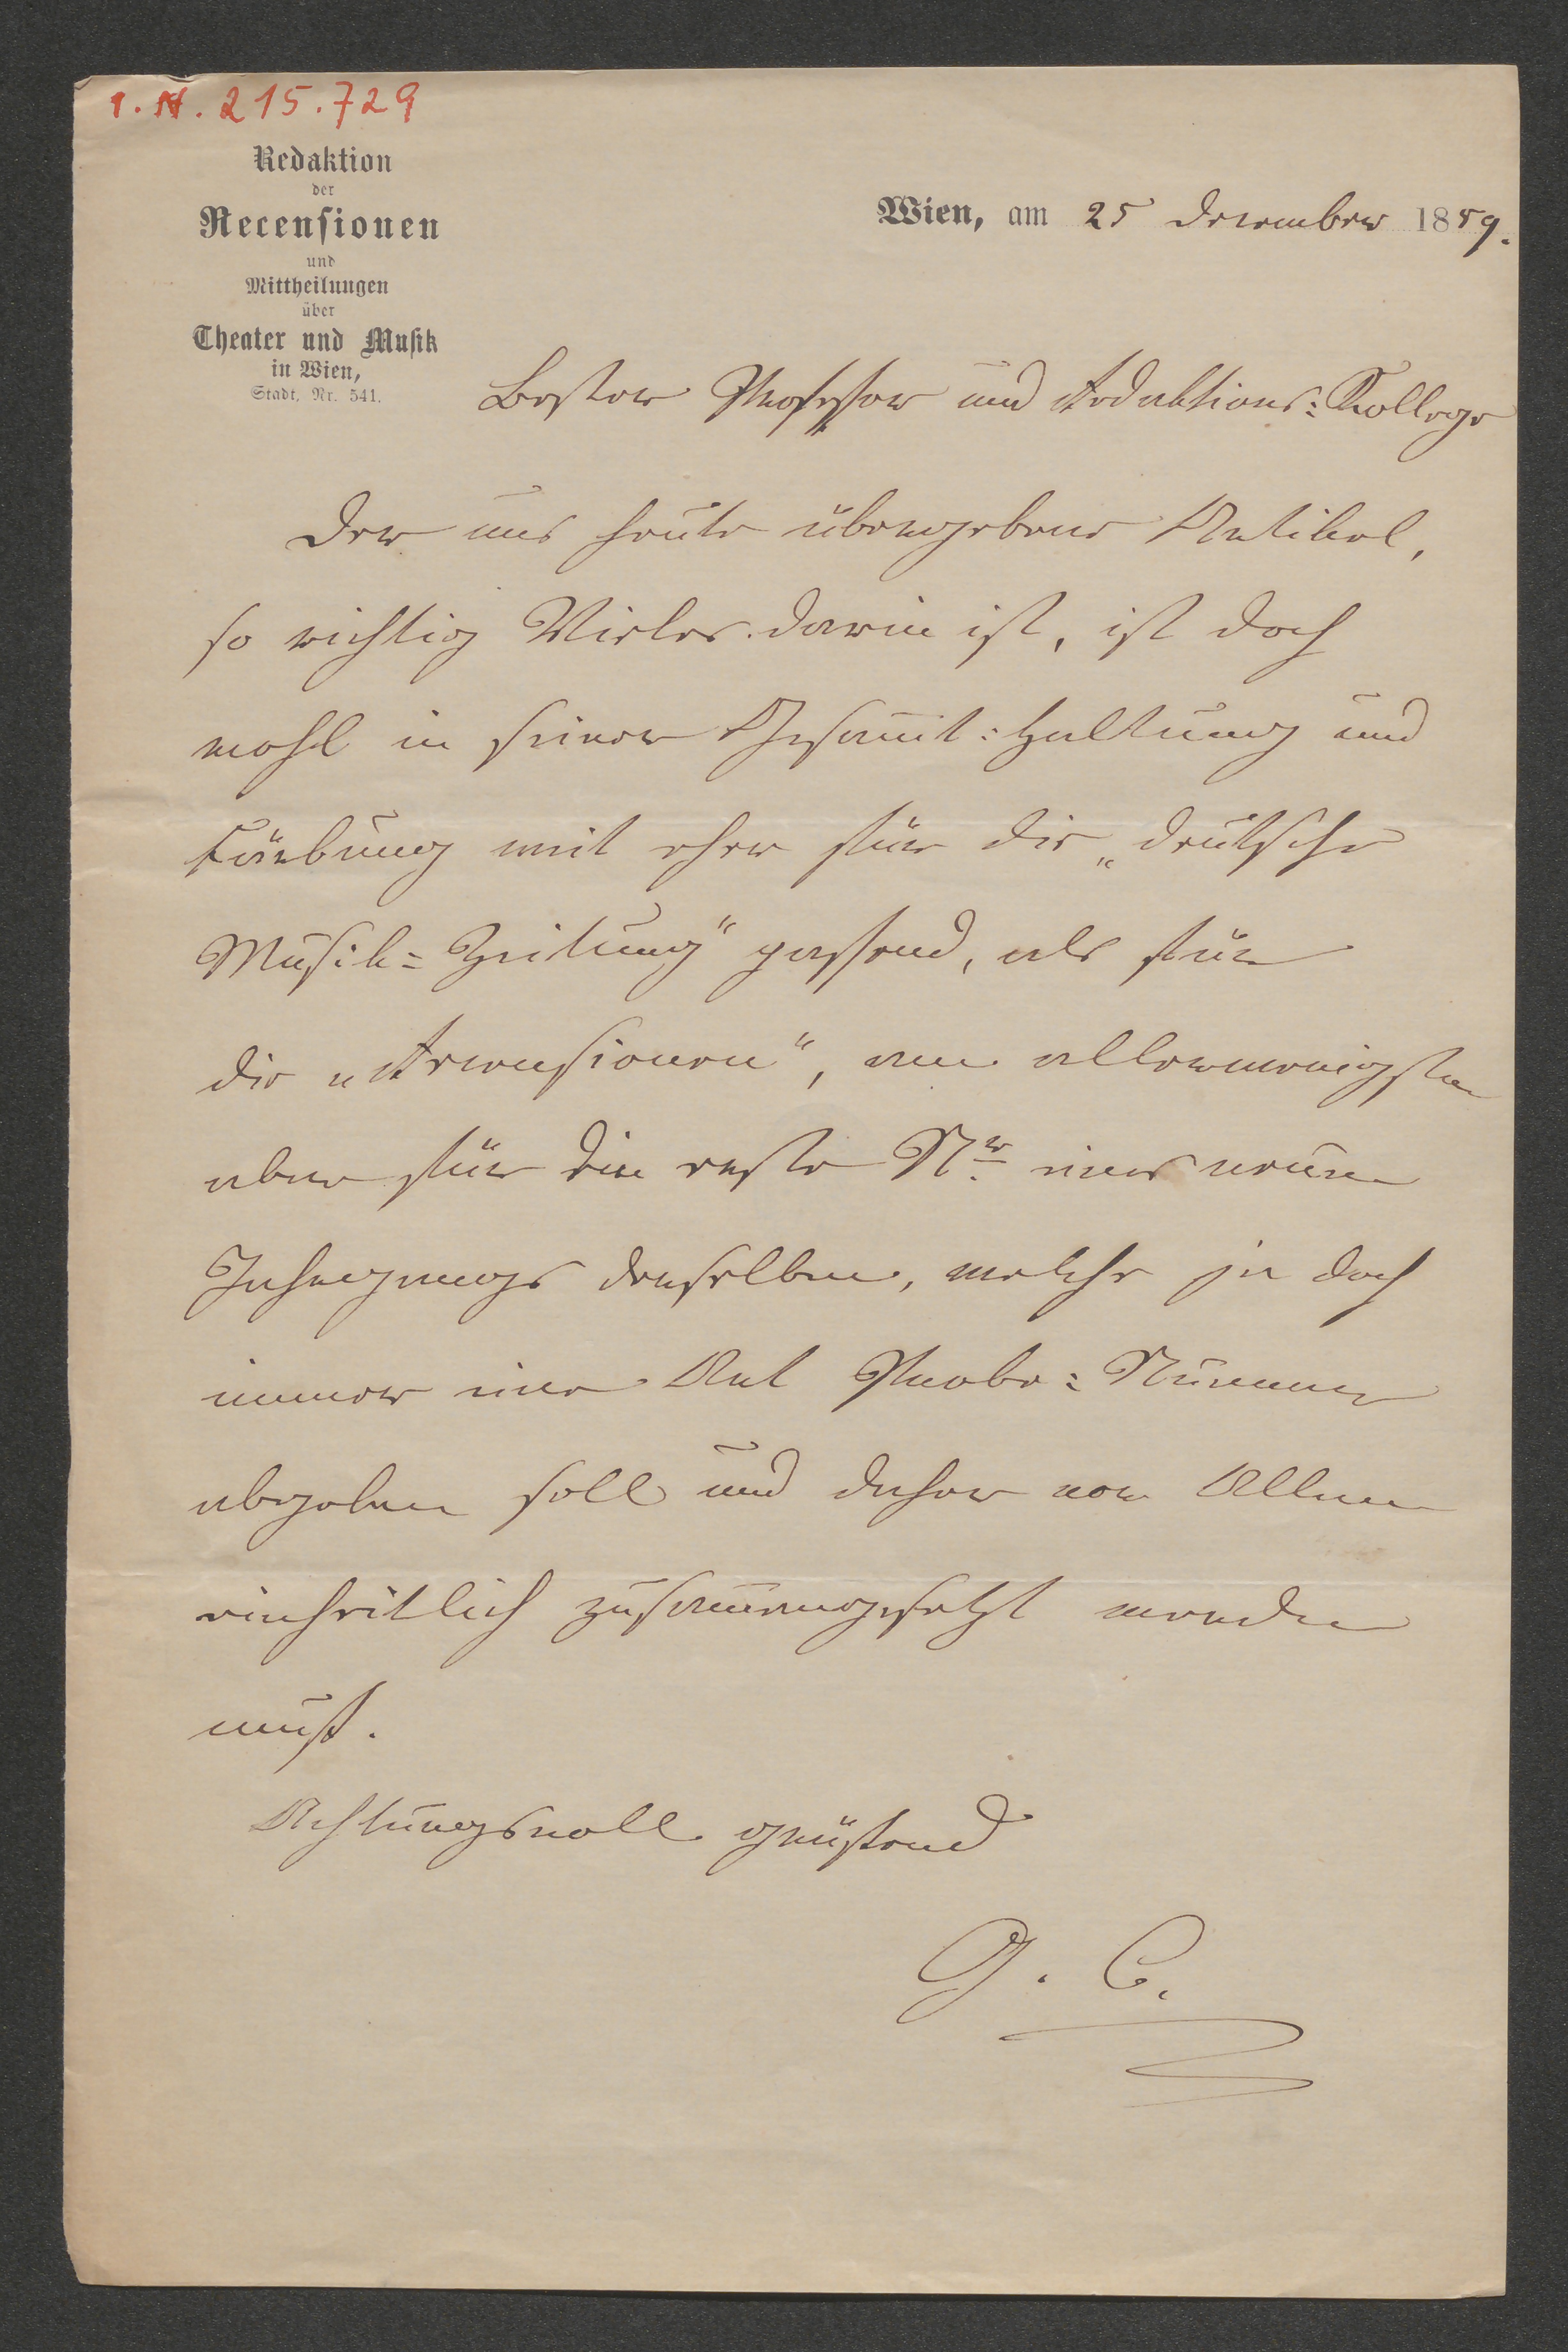 I. N. 215.729
Redaktion
der
Recensionen
und
Mittheilungen
über
Theater und Musik
in Wien,
Stadt, Nr. 541.
Wien, am 25 Dezember 1859.
Bester Professor und Redaktions-Kollege
Der uns heute übergebene Artikel,
so richtig Vieles darin ist, ist doch
wohl in seiner Gesam̅t-Haltung und
Färbung weit eher für die „Deutsche
Musik-Zeitung" passend, als für
die „Recensionen", am allerwenigsten
aber für die erste Nr. eines neuen
Jahrgangs derselben, welche ja doch
immer eine Art Probe-Nummer
abgeben soll und daher vor Allem
einheitlich zusam̅engesetzt werden
muß.
Achtungsvoll grüßend
G. C.